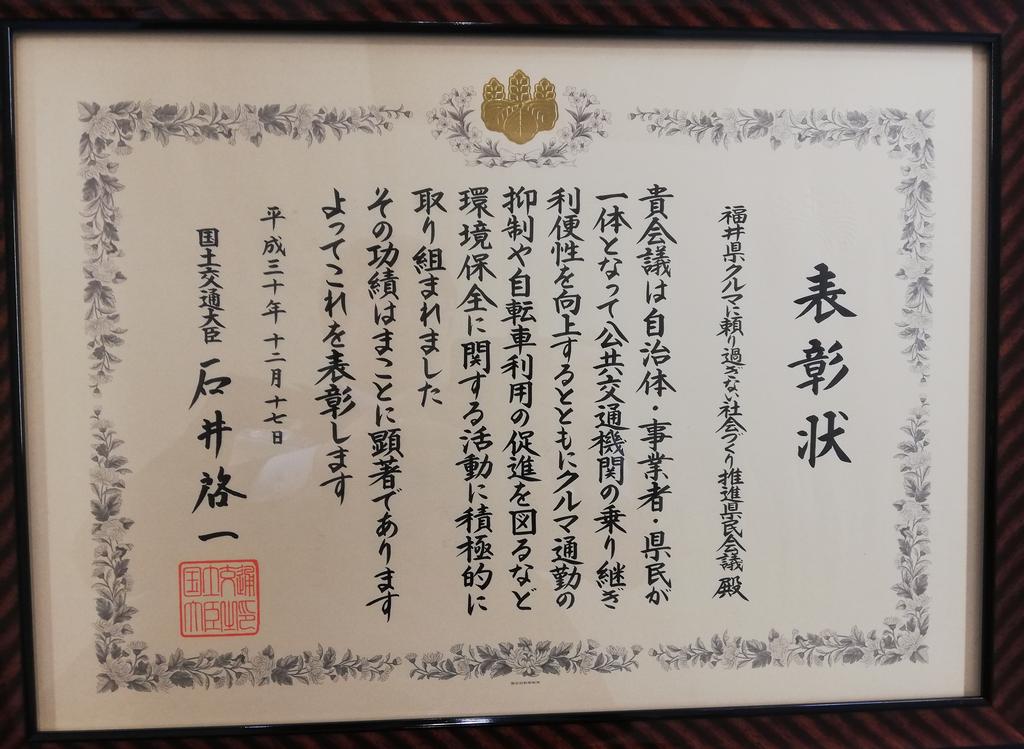 表彰状
福井県クルマに頼り過ぎない社会づくり推進県民会議 殿
貴会議は自治体・事業者・県民が
一体となって公共交通機関の乗り継ぎ
利便性を向上するとともにクルマ通勤の
抑制や自転車利用の促進を図るなど
環境保全に関する活動に積極的に
取り組まれました
その功績はまことに顕著であります
よってこれを表彰します
平成三十年十二月十七日
国土交通大臣 石井啓一